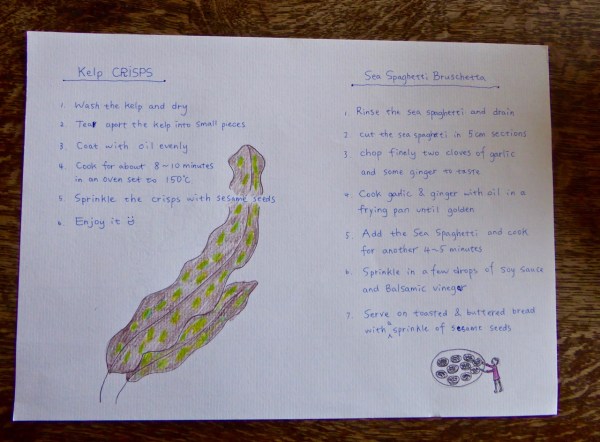 Kelp CRISPS
1. Wash the kelp and dry
2. Tear apart the kelp into small pieces
3. Coat with oil evenly
4. Cook for about 8~10 minutes
in an oven set to 150°C
5. Sprinkle the crisps with sesame seeds
6. Enjoy it
Sea Spaghetti Bruschetta
1. Rinse the sea spaghetti and drain
2 cut the sea spaghetti in 5cm sections
3 chop finely two cloves of garlic
and some ginger to taste
4 Cook garlic & ginger with oil in a
frying pan until golden
5 Add the Sea Spaghetti and cook
for another 4~5 minutes
6. Sprinkle in a few drops of Soy sauce
and Balsamic vinegar
7. Serve on toasted & buttered bread
with a sprinkle of sesame seeds